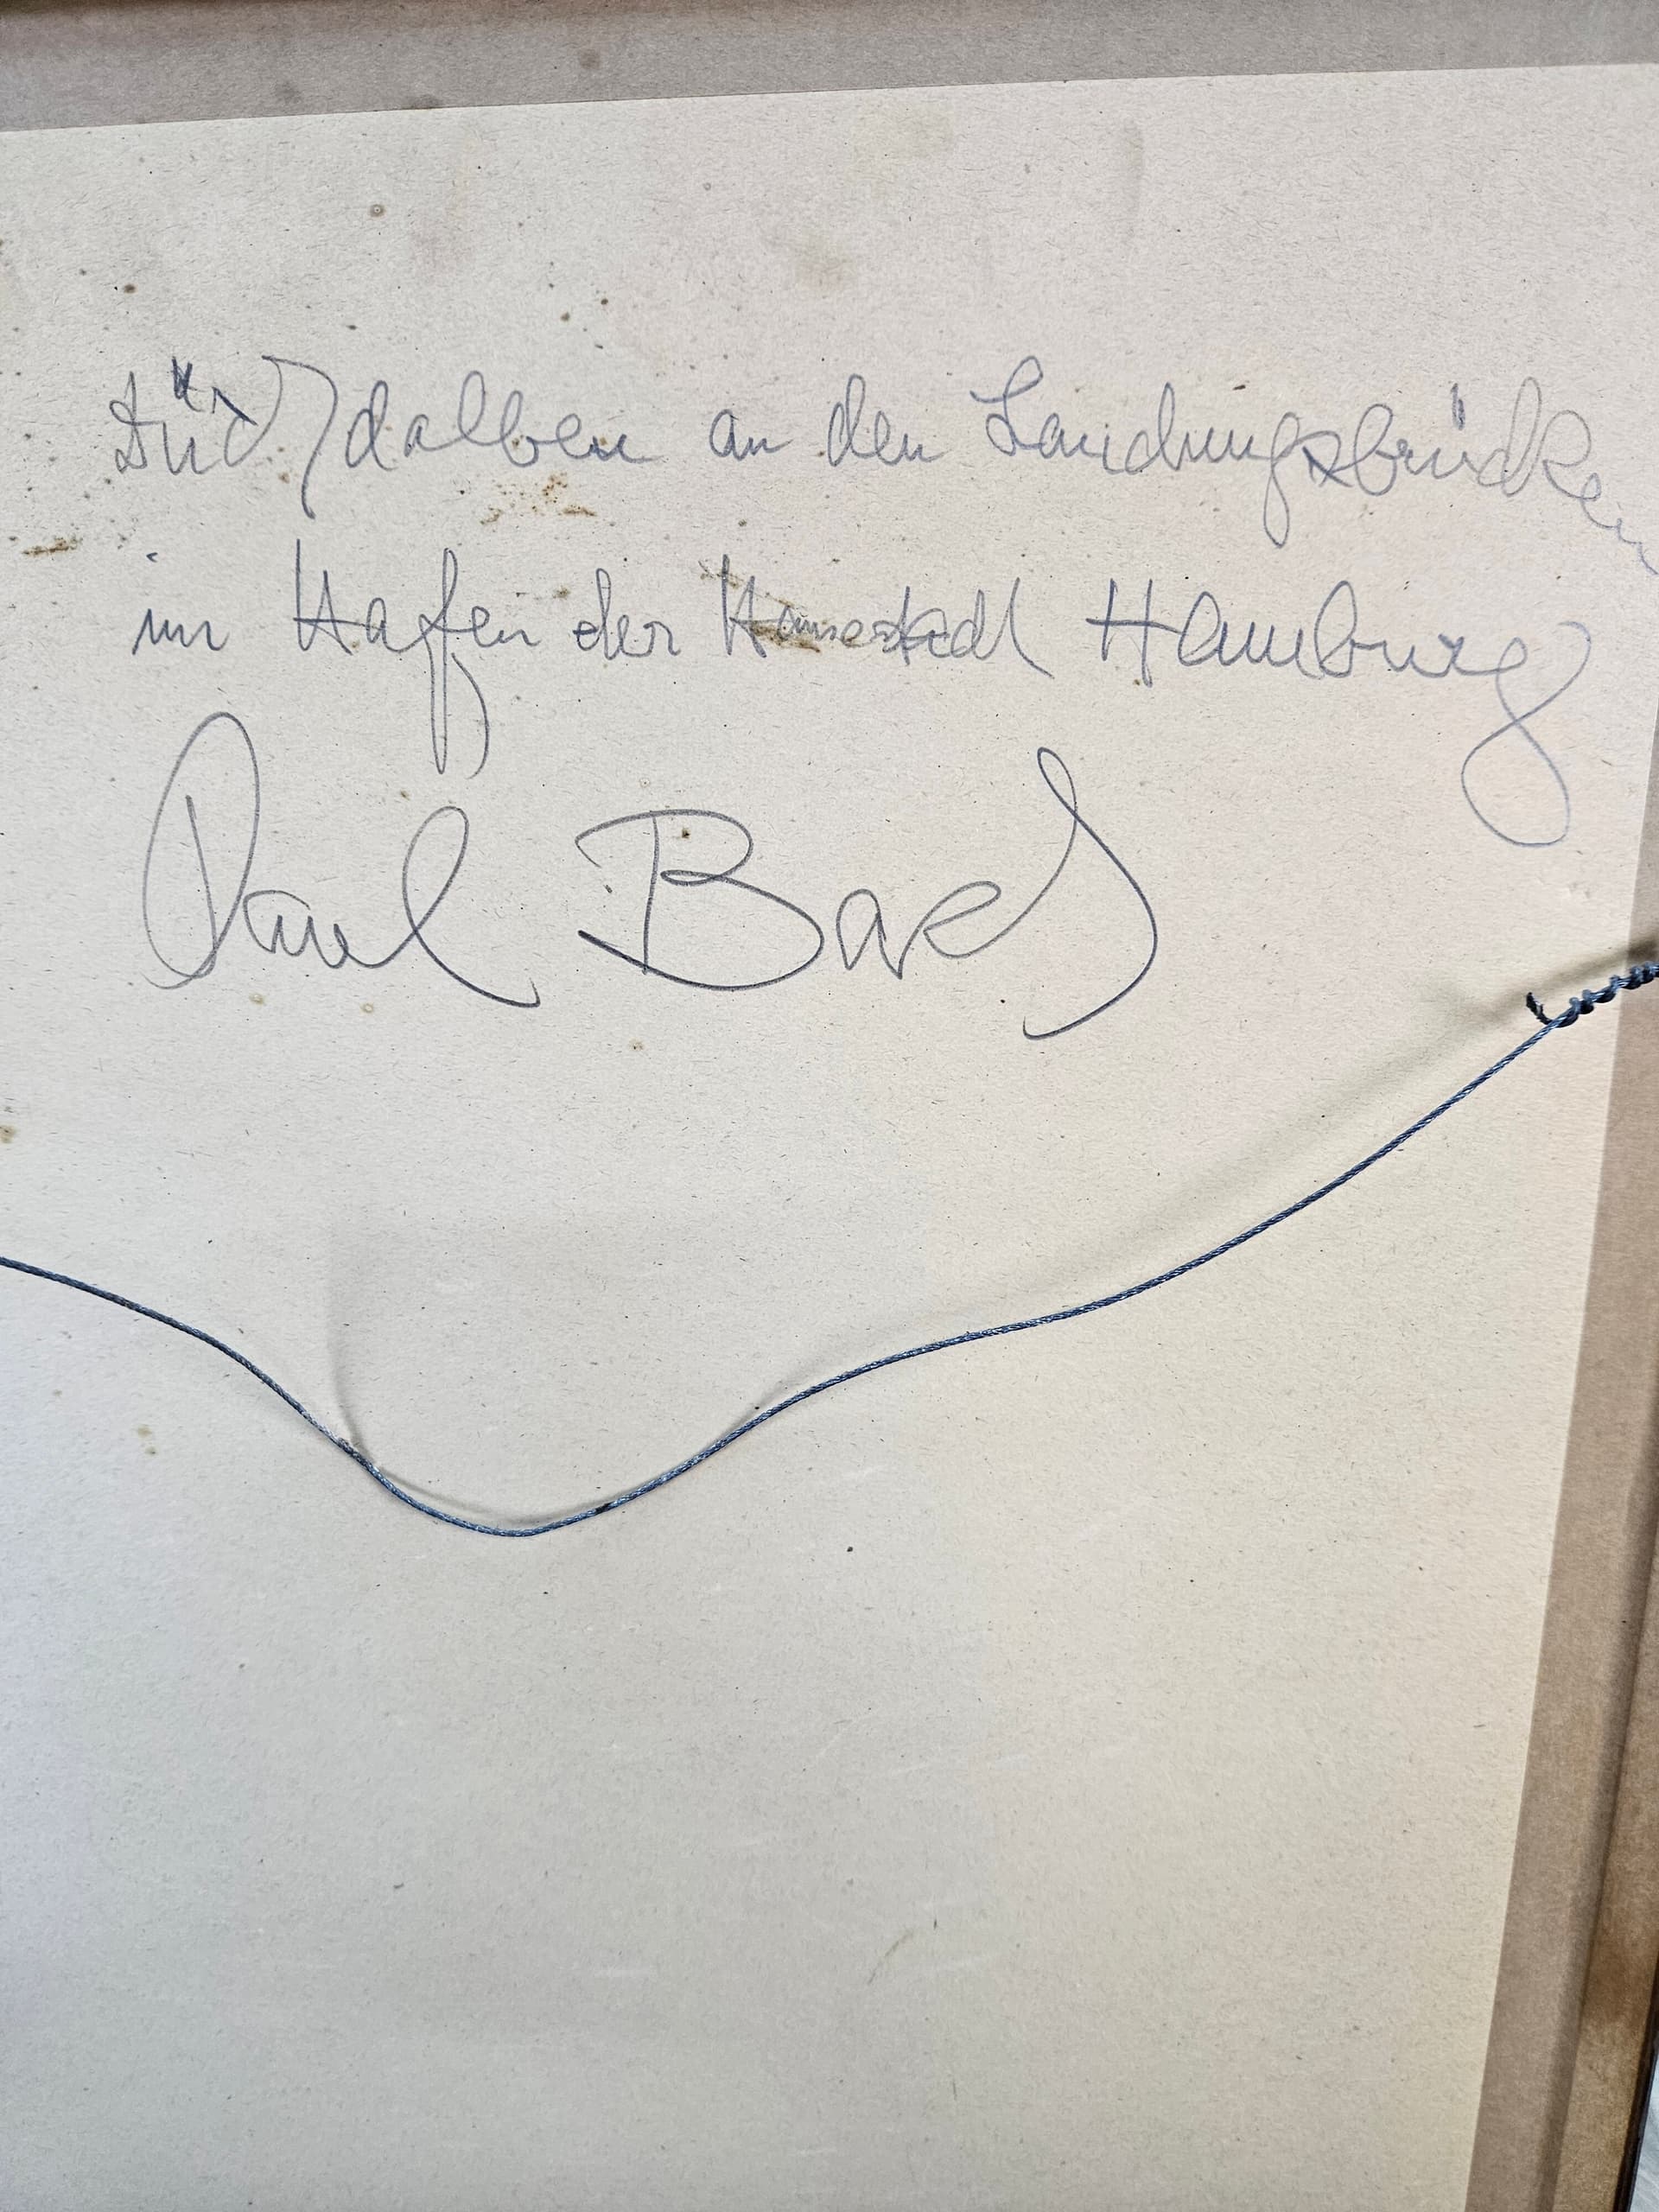 Dückdalben an den Landungsbrücken
im Hafen der Hansestadt Hamburg
Paul